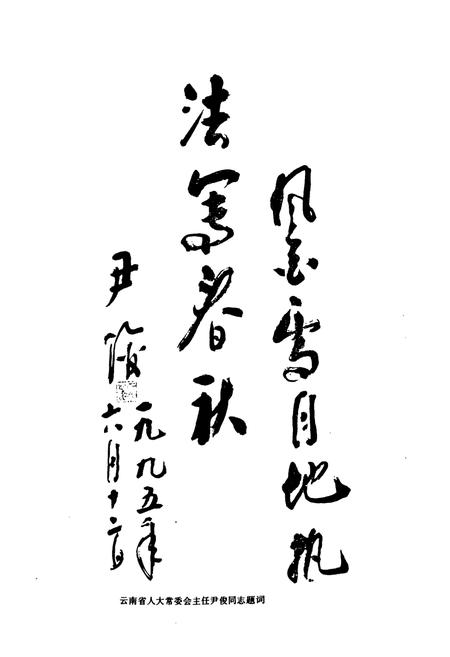 风花雪月地执
法写春秋
尹俊
一九九五年
六月十二日
云南省人大常委会主任尹俊同志题词